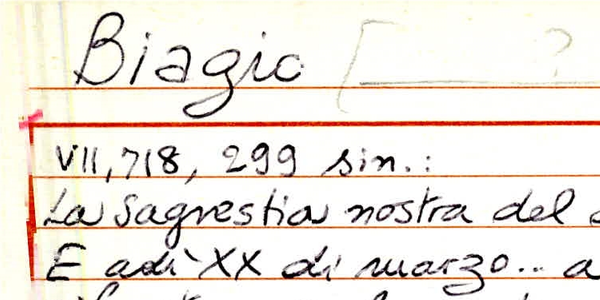 Biagio [ ?
VII, 718, 299 sin.:
La Sagrestia nostra del
E adì XX di marzo... a